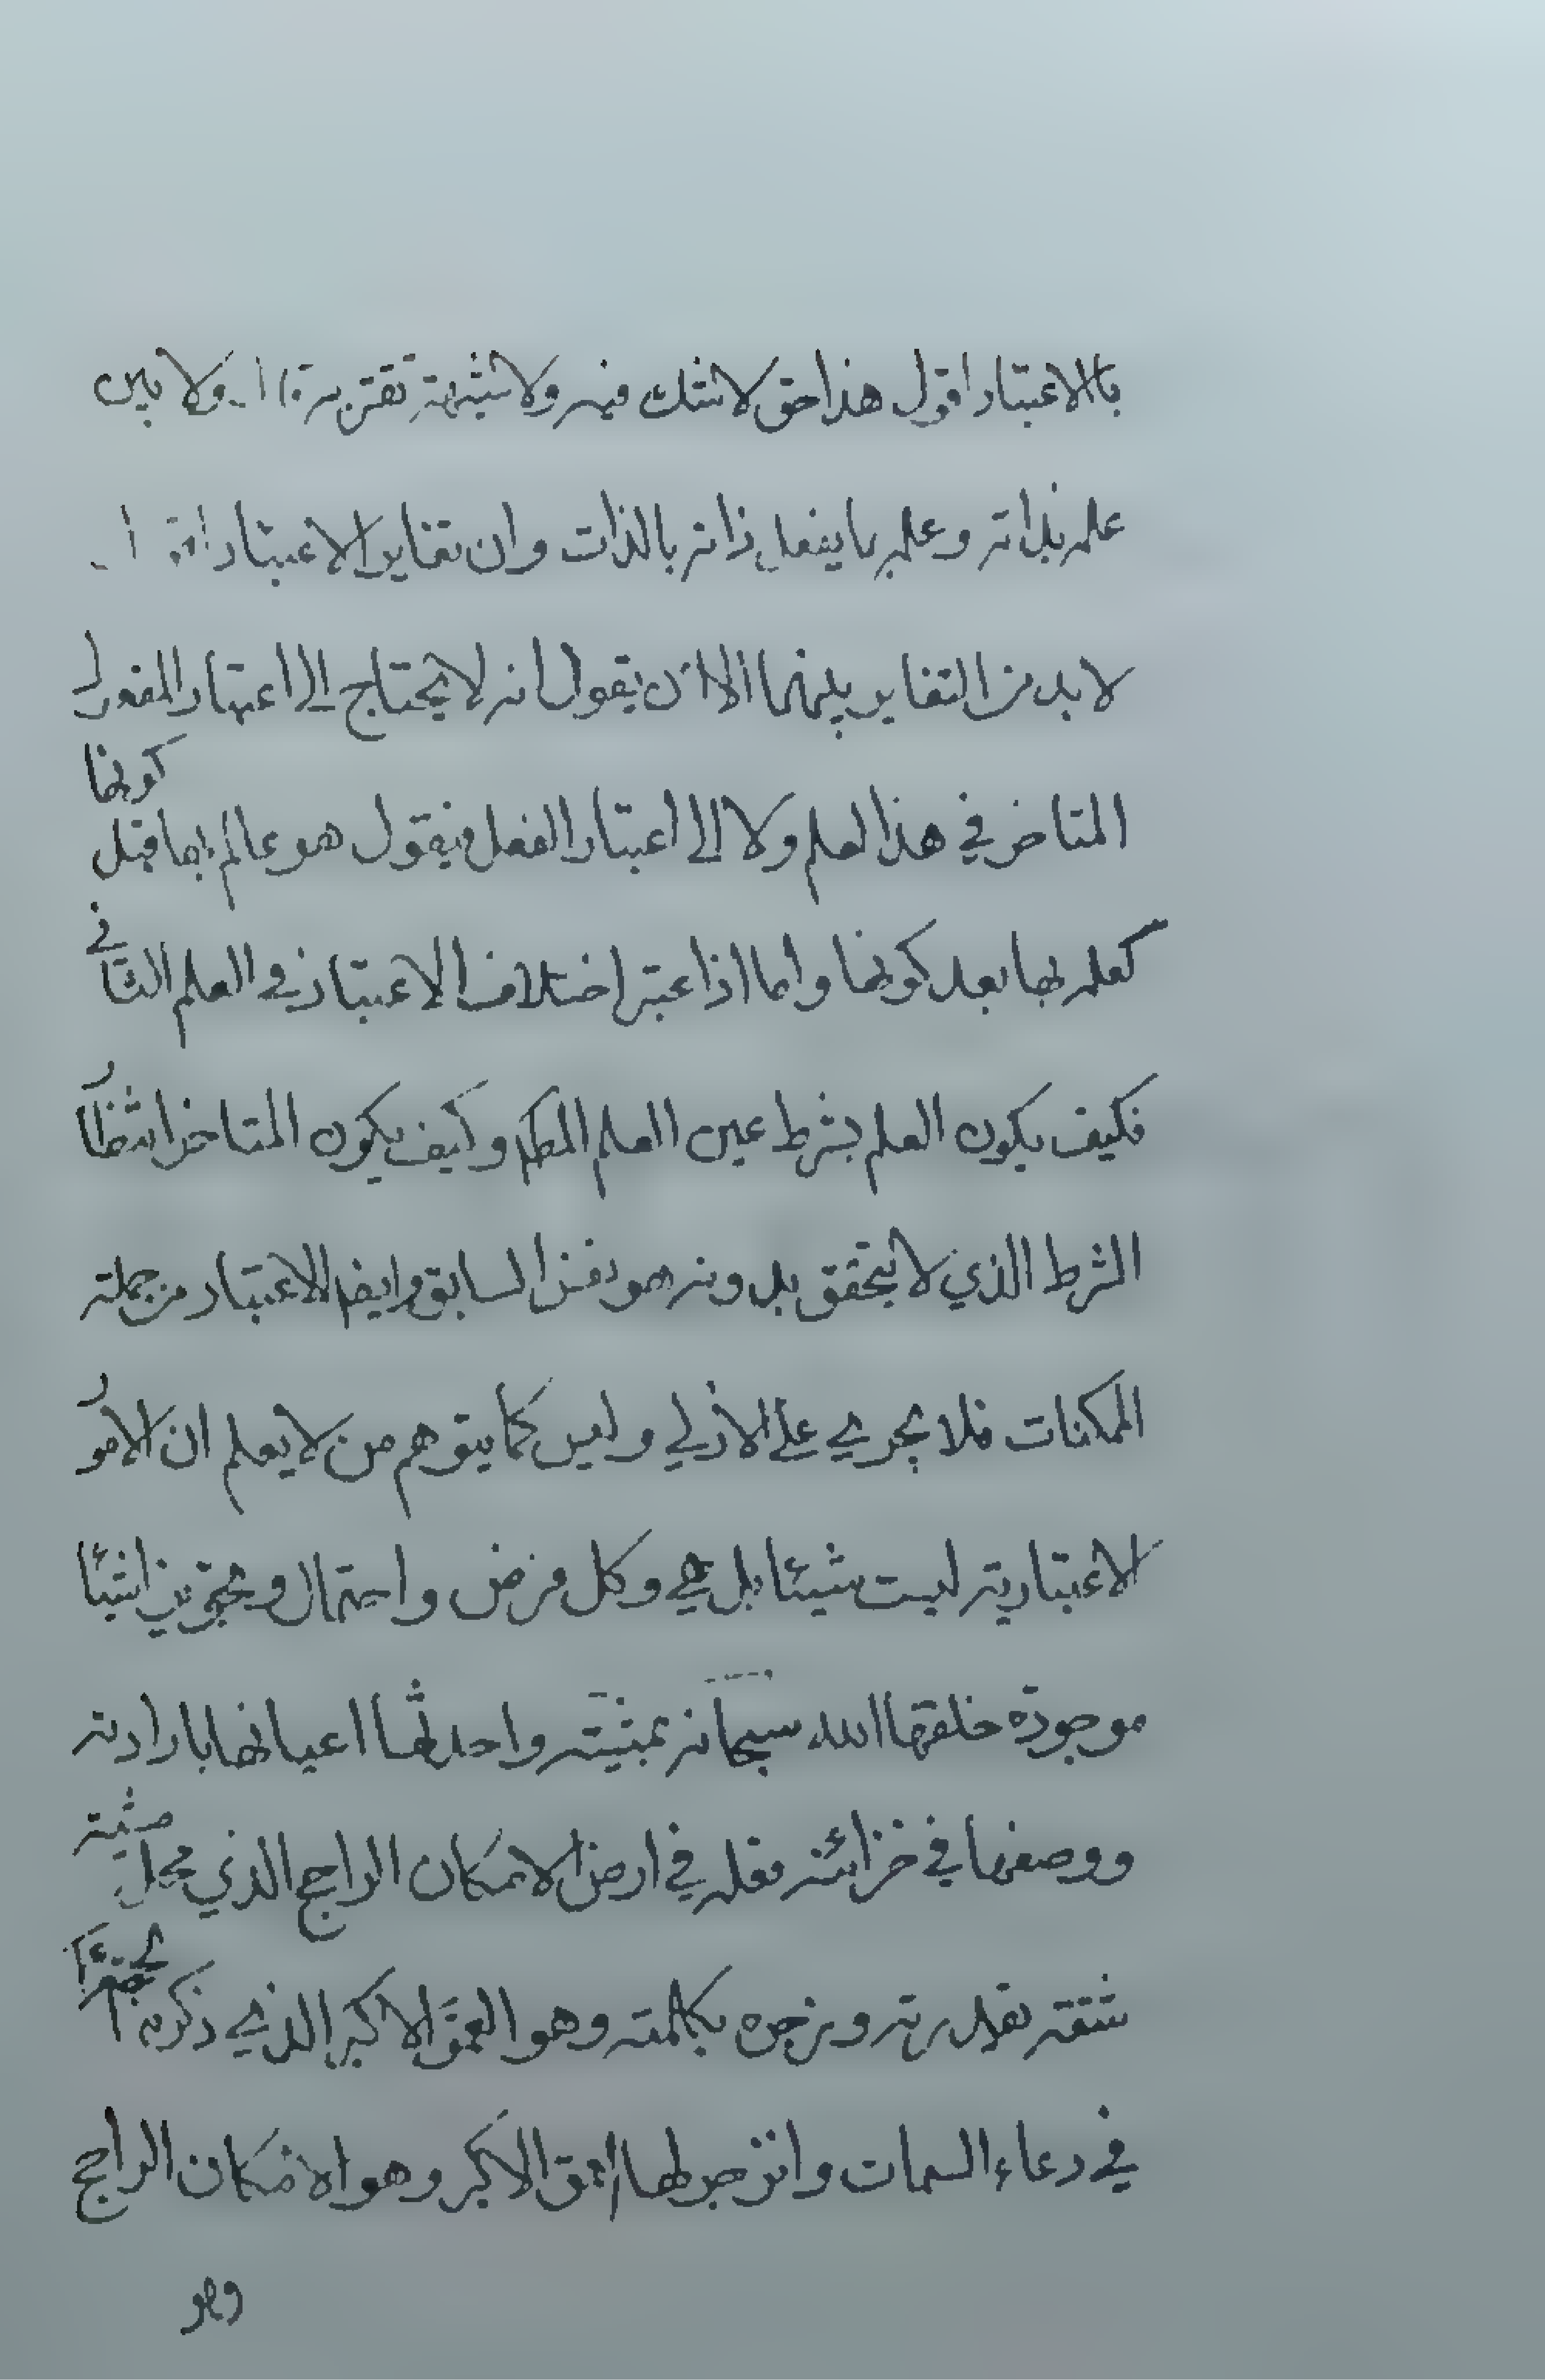 بالاعتبار اقول هذا حق لا شك فيه ولا شبهة تعتريه ولا بين
علمه بذاته وعلمه بما يفعل ذاته بالذات وان تغاير الاعتبار
لا بد من التغاير بينهما الا ان يقول انه لا يحتاج الى اعتبار المفعول
المتاخر في هذا العلم ولا الى اعتبار الفعل فيقول هو عالم بها قبل كونها
كعلمه بها بعد كونها واما اذا اعتبر اختلاف الاعتبار في العلم الثاني
فكيف يكون العلم بشرط عين العلم المطلق وكيف يكون المتاخر انتظار
الشرط الذي لا يتحقق بدونه هو نفس السابق وايضا الاعتبار من جملة
الممكنات فلا يجري على الازلي وليس كما يتوهم من لا يعلم ان الامور
الاعتبارية ليست شيئا بل هي وكل فرض واحتمال وتجويز اشياء
موجودة خلقها الله سبحانه بمشيته واحدث اعيانها بارادته
ووضعها في خزائنه فعله في ارض الامكان الراجح الذي محل مشيته
شقه بقدرته وزجره بكلمته وهو العمق الاكبر الذي ذكره
في دعاء السمات وانزجر لها العمق الاكبر وهو الامكان الراجح
وهو